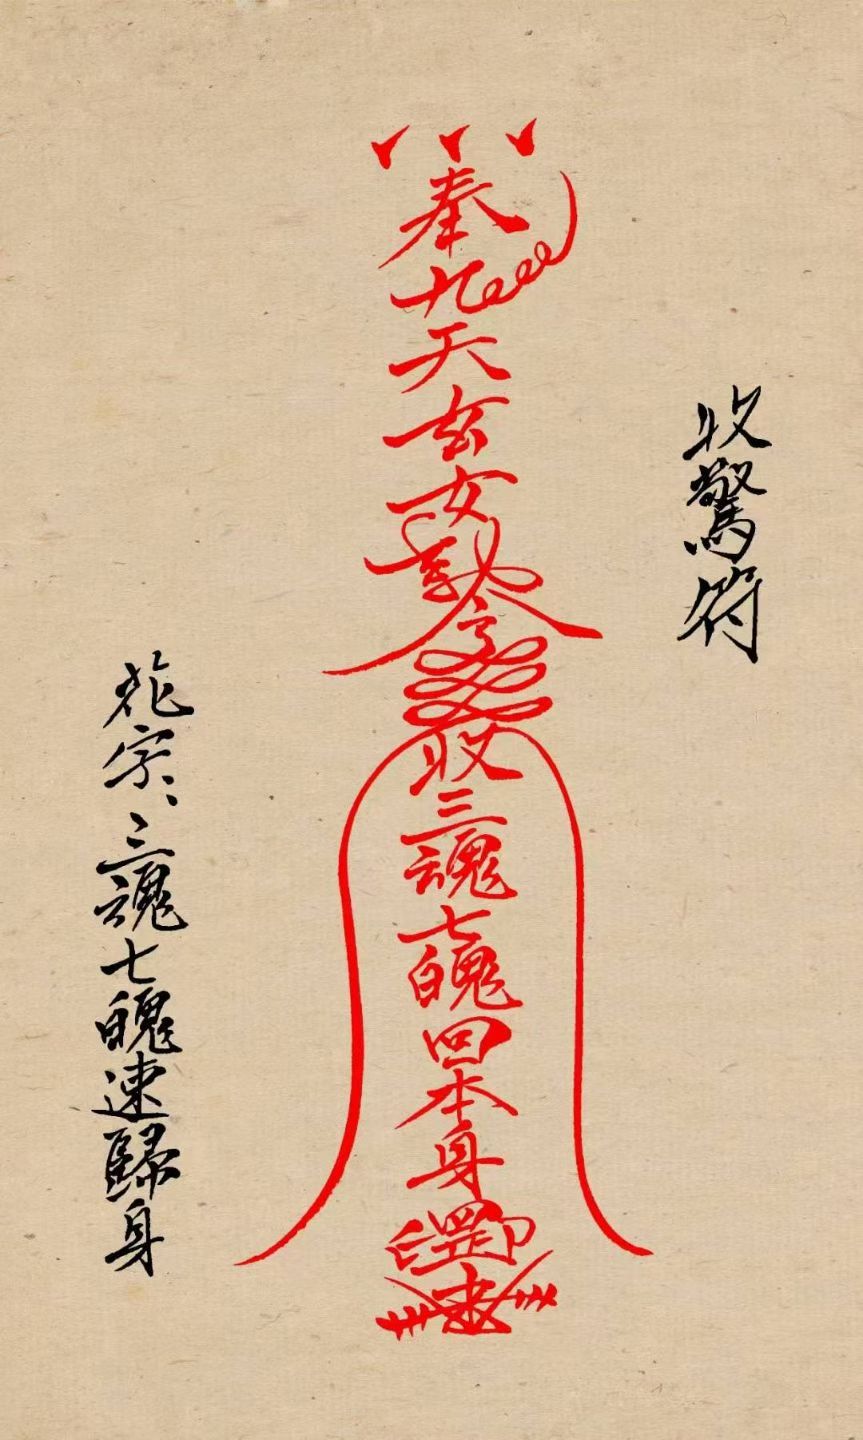 收驚符
奉九天玄女勅令
收三魂七魄回本身
花字、三魂七魄速歸身